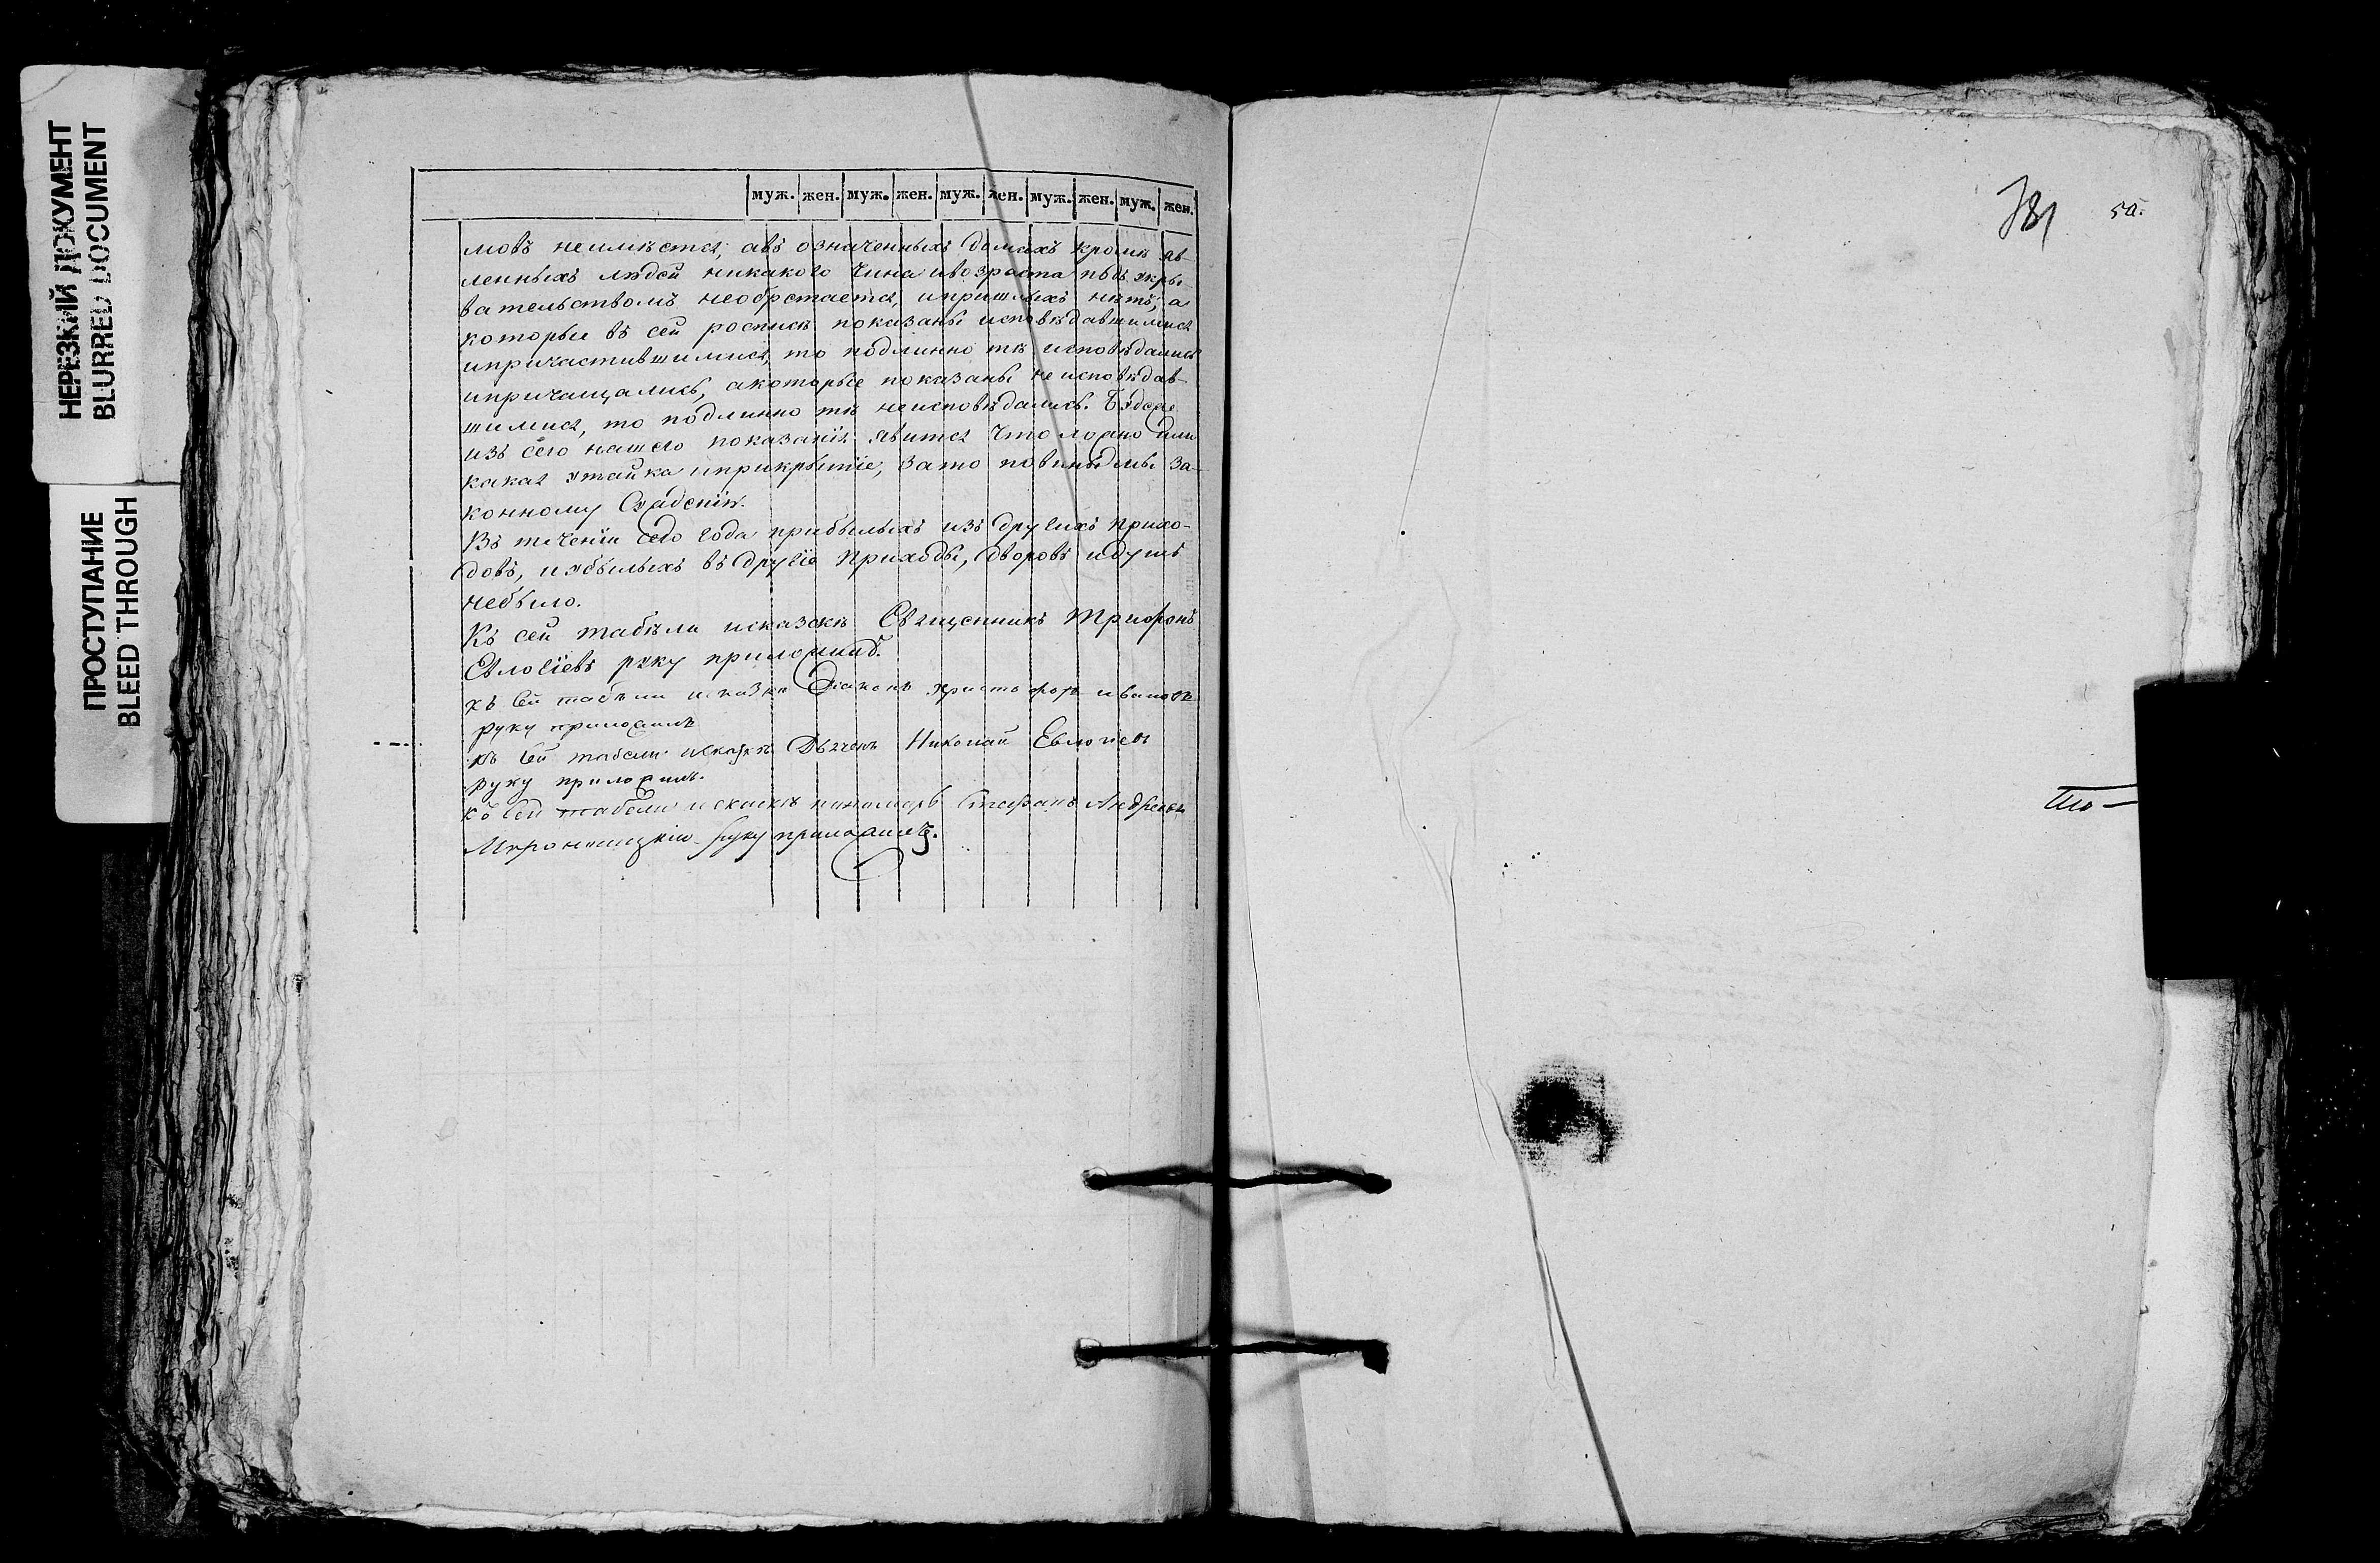 НЕРЕЗКИЙ ДОКУМЕНТ
BLURRED DOCUMENT
ПРОСТУПАНИЕ
BLEED THROUGH
муж. жен. муж. жен. муж. жен. муж. жен. муж. жен.
мовъ неимѣется, авъ означенныхъ домахъ кромѣ яв-
ленныхъ людей никакого чина ивозраста подъ укры-
вательствомъ необрѣтается, ипришлыхъ нѣтъ, а
которые въ сей росписѣ показаны исповѣдавшимися
ипричастившимися, то подлинно тѣ исповѣдались
ипричащались, акоторые показаны неисповѣдав-
шимися, то подлинно тѣ неисповѣдались. Буде же
изъ сего нашего показанїя явится что ложно или
какая утайка иприкрытїе, зато повинны мы за-
конному сужденїю.
Въ теченїи сего года прибылыхъ изъ другихъ прихо-
довъ, иубылыхъ въ другїе приходы, дворовъ идушъ
небыло.
Къ сей табѣли исказкѣ Священникъ Трифонъ
Евлогїевъ руку приложилъ.
къ сей табѣли исказкѣ Диаконъ христофоръ ивановъ
руку приложилъ
къ сей табели исказкѣ Дьячекъ Николай Евлогиевъ
руку приложилъ.
къ сей табели исказкѣ пономарь Стефанъ Андреевъ
руку приложилъ.
781 50.